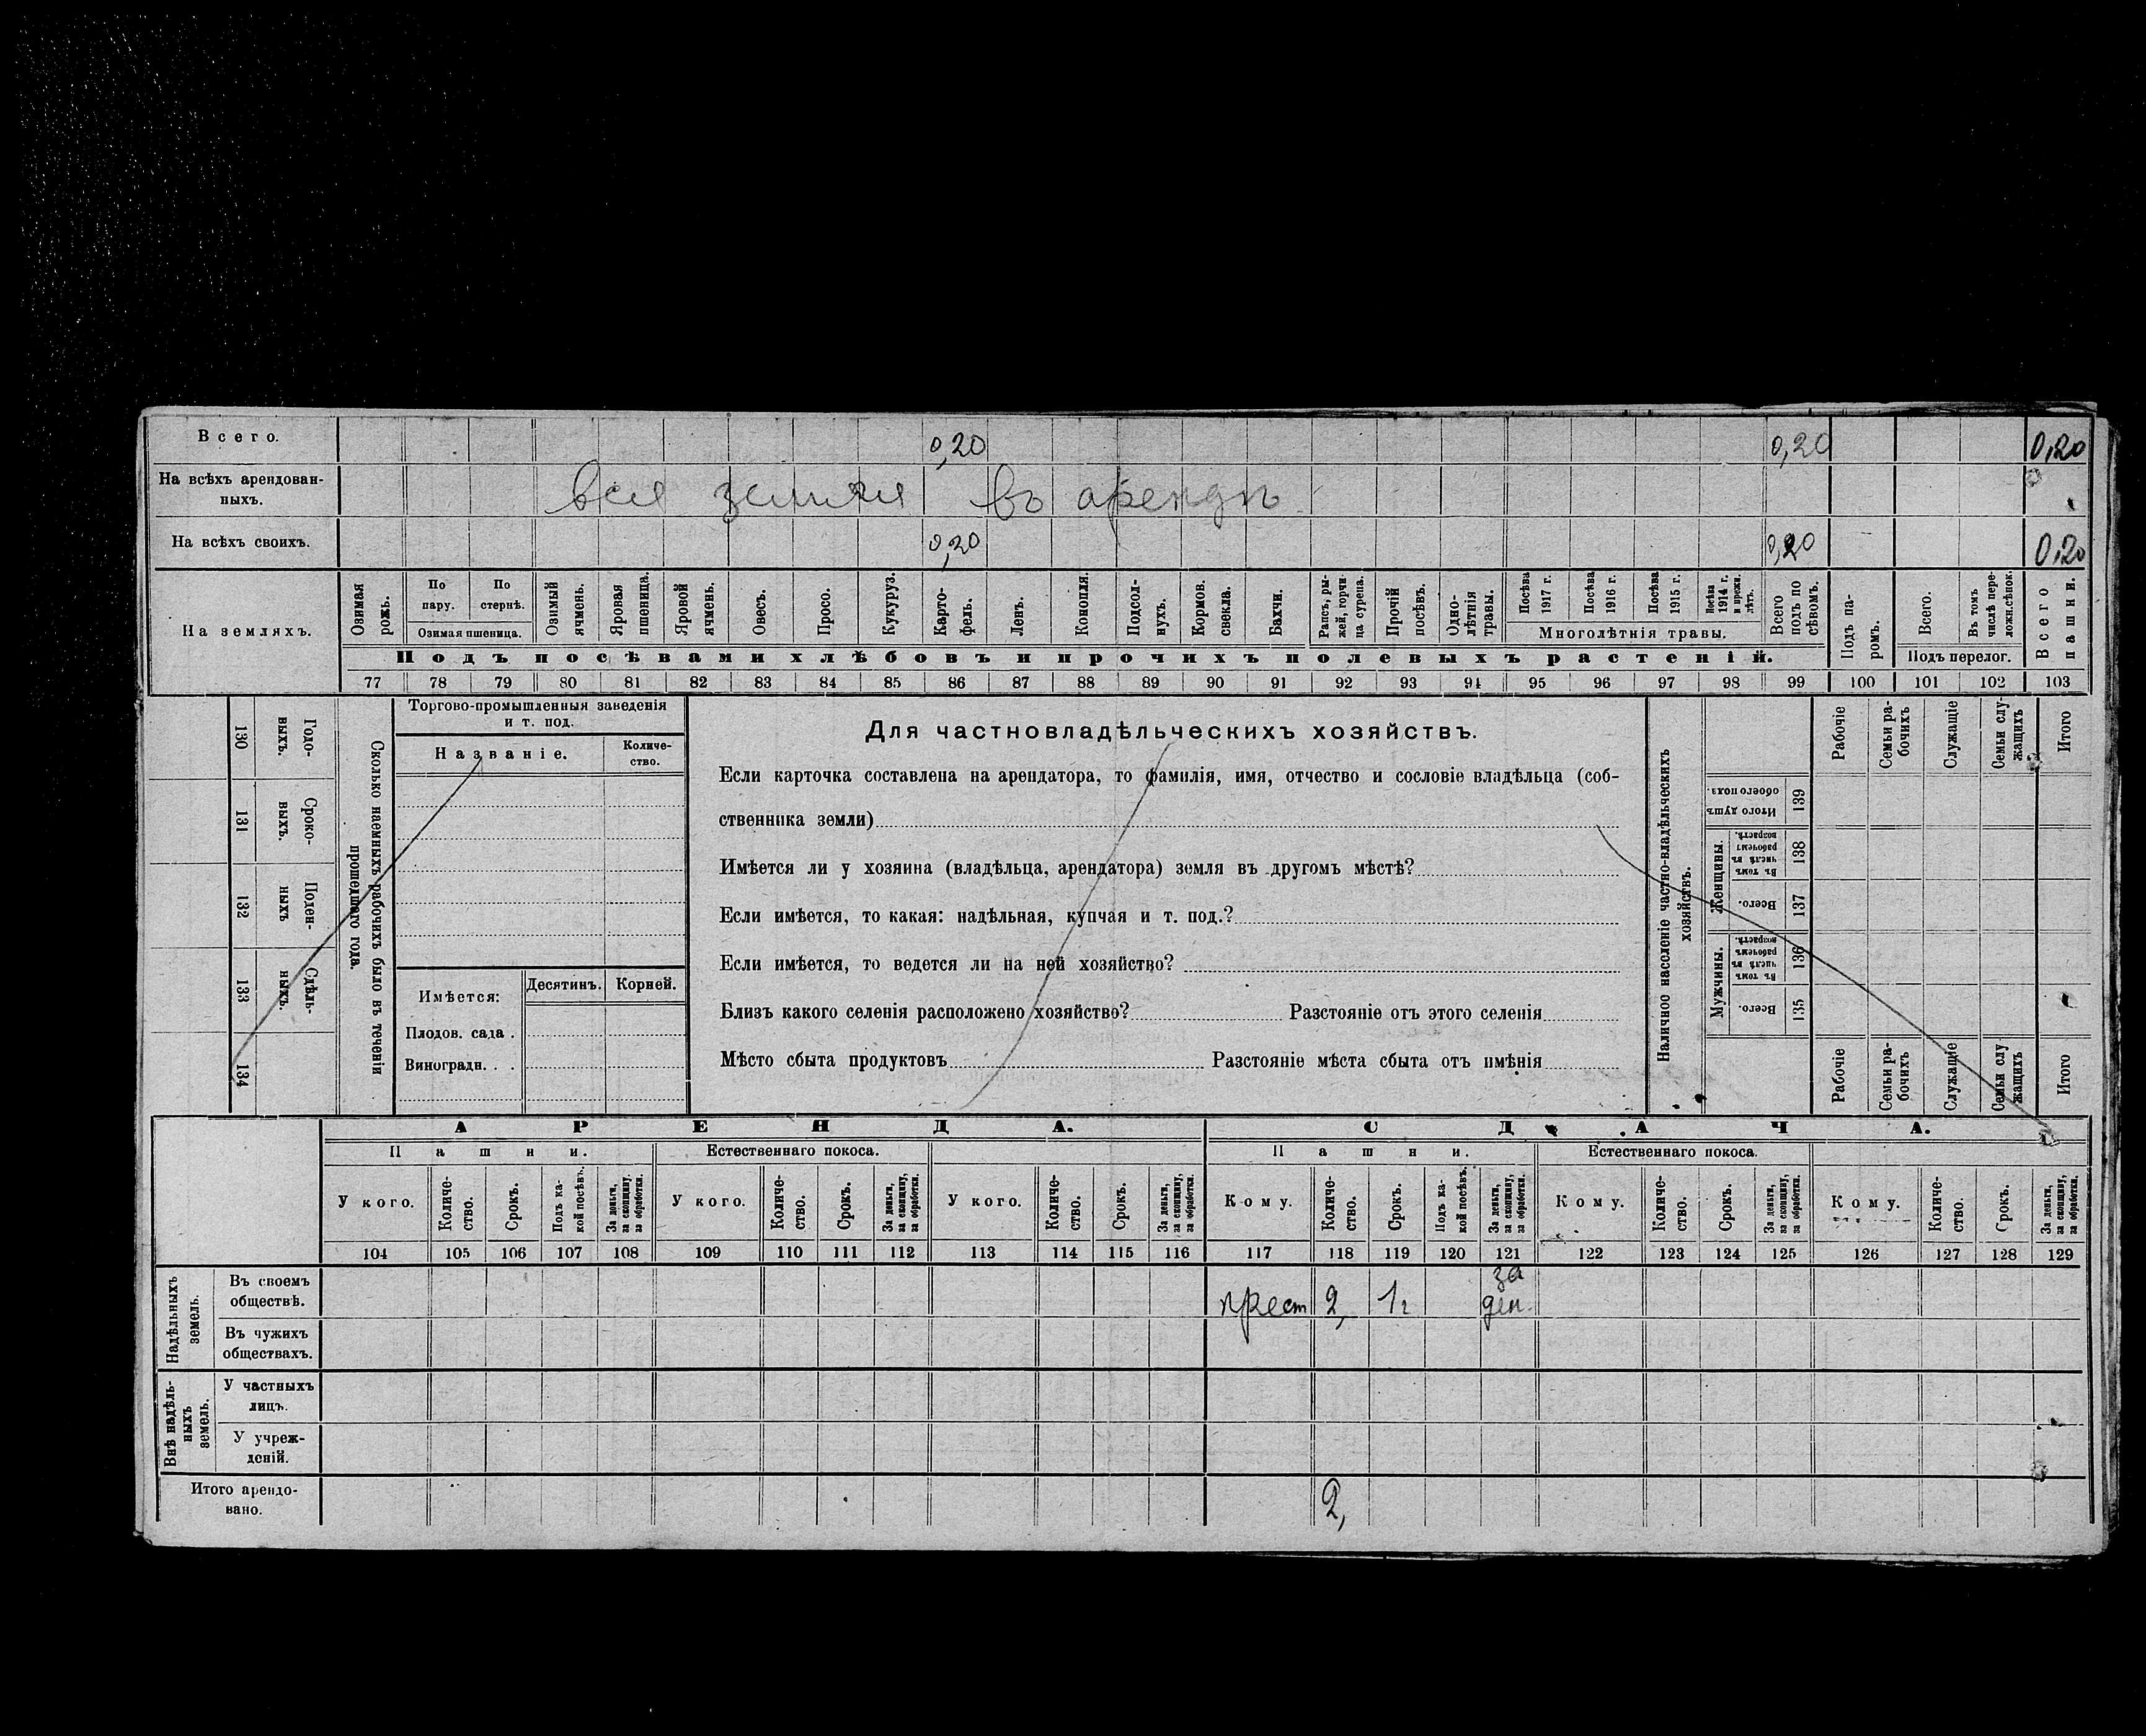 Всего. 0,20 0,20 0,20
На всѣхъ арендован-
ныхъ. вся земля въ арендѣ
На всѣхъ своихъ. 0,20 0,20 0,20
На земляхъ.
Озимая рожь.
По пару.
По стернѣ.
Озимая пшеница.
Озимый ячмень.
Яровая пшеница.
Яровой ячмень.
Овесъ.
Просо.
Кукуруз.
Карто-
фель.
Ленъ.
Конопля.
Подсол-
нухъ.
Кормов. свекла.
Бахчи.
Рапсъ, ры-
жей, горчи
ца сурепа.
Прочій посѣвъ.
Одно-
лѣтнія
травы.
Посѣва 1917 г.
Посѣва 1916 г.
Посѣва 1915 г.
Посѣва 1914 г. и прежн. лѣтъ.
Многолѣтнія травы.
Всего подъ по
сѣвомъ.
Подъ посѣвами хлѣбовъ и прочихъ полевыхъ растеній.
Подъ па-
ромъ.
Всего.
Въ томъ числѣ пере-
ложн.сѣнок.
Подъ перелог.
Всего пашни.
77 78 79 80 81 82 83 84 85 86 87 88 89 90 91 92 93 94 95 96 97 98 99 100 101 102 103
130 Годо-
выхъ.
131 Сроко-
выхъ.
132 Поден-
ныхъ
133 Сдѣль-
ныхъ.
134
Сколько наемныхъ рабочихъ было въ теченіи
прошедшаго года.
Торгово-промышленныя заведенія
и т. под.
Названіе.
Количе-
ство.
Имѣется: Десятинъ. Корней.
Плодов. сада .
Виноградн. . .
Для частновладѣльческихъ хозяйствъ.
Если карточка составлена на арендатора, то фамилія, имя, отчество и сословіе владѣльца (соб-
ственника земли)
Имѣется ли у хозяина (владѣльца, арендатора) земля въ другомъ мѣстѣ?
Если имѣется, то какая: надѣльная, купчая и т. под.?
Если имѣется, то ведется ли на ней хозяйство?
Близъ какого селенія расположено хозяйство? Разстояніе отъ этого селенія
Мѣсто сбыта продуктовъ Разстояніе мѣста сбыта отъ имѣнія
Наличное населеніе частно-владѣльческихъ
хозяйствъ.
Рабочіе
Семьи ра-
бочихъ
Служащіе
Семьи слу-
жащихъ
Итого
Итого душъ обоего пола. 139
Женщины.
Въ томъ числѣ въ рабочемъ возрастѣ. 138
Всего. 137
Мужчины.
Въ томъ числѣ въ рабочемъ возрастѣ. 136
Всего. 135
Рабочіе
Семьи ра-
бочихъ
Служащіе
Семьи слу
жащихъ
Итого
АРЕНДА. СДАЧА.
Пашни. Естественнаго покоса. Пашни. Естественнаго покоса.
У кого.
Количе-
ство.
Срокъ.
Подъ ка-
кой посѣвъ.
За деньги, за скопщину, за обработки.
У кого.
Количе-
ство.
Срокъ.
За деньги, за скопщину, за обработки.
У кого.
Количе-
ство.
Срокъ.
За деньги, за скопщину, за обработки.
Кому.
Количе-
ство.
Срокъ.
Подъ ка-
кой посѣвъ.
За деньги, за скопщину, за обработки.
Кому.
Количе-
ство.
Срокъ.
За деньги, за скопщину, за обработки.
Кому.
Количе-
ство.
Срокъ.
За деньги, за скопщину, за обработки.
104 105 106 107 108 109 110 111 112 113 114 115 116 117 118 119 120 121 122 123 124 125 126 127 128 129
Надѣльныхъ
земель.
Въ своемъ
обществѣ. крест 2, 1г за
ден.
Въ чужихъ
обществахъ.
Внѣ надѣль-
ныхъ
земель.
У частныхъ
лицъ.
У учреж-
деній.
Итого арендо-
вано. 2,